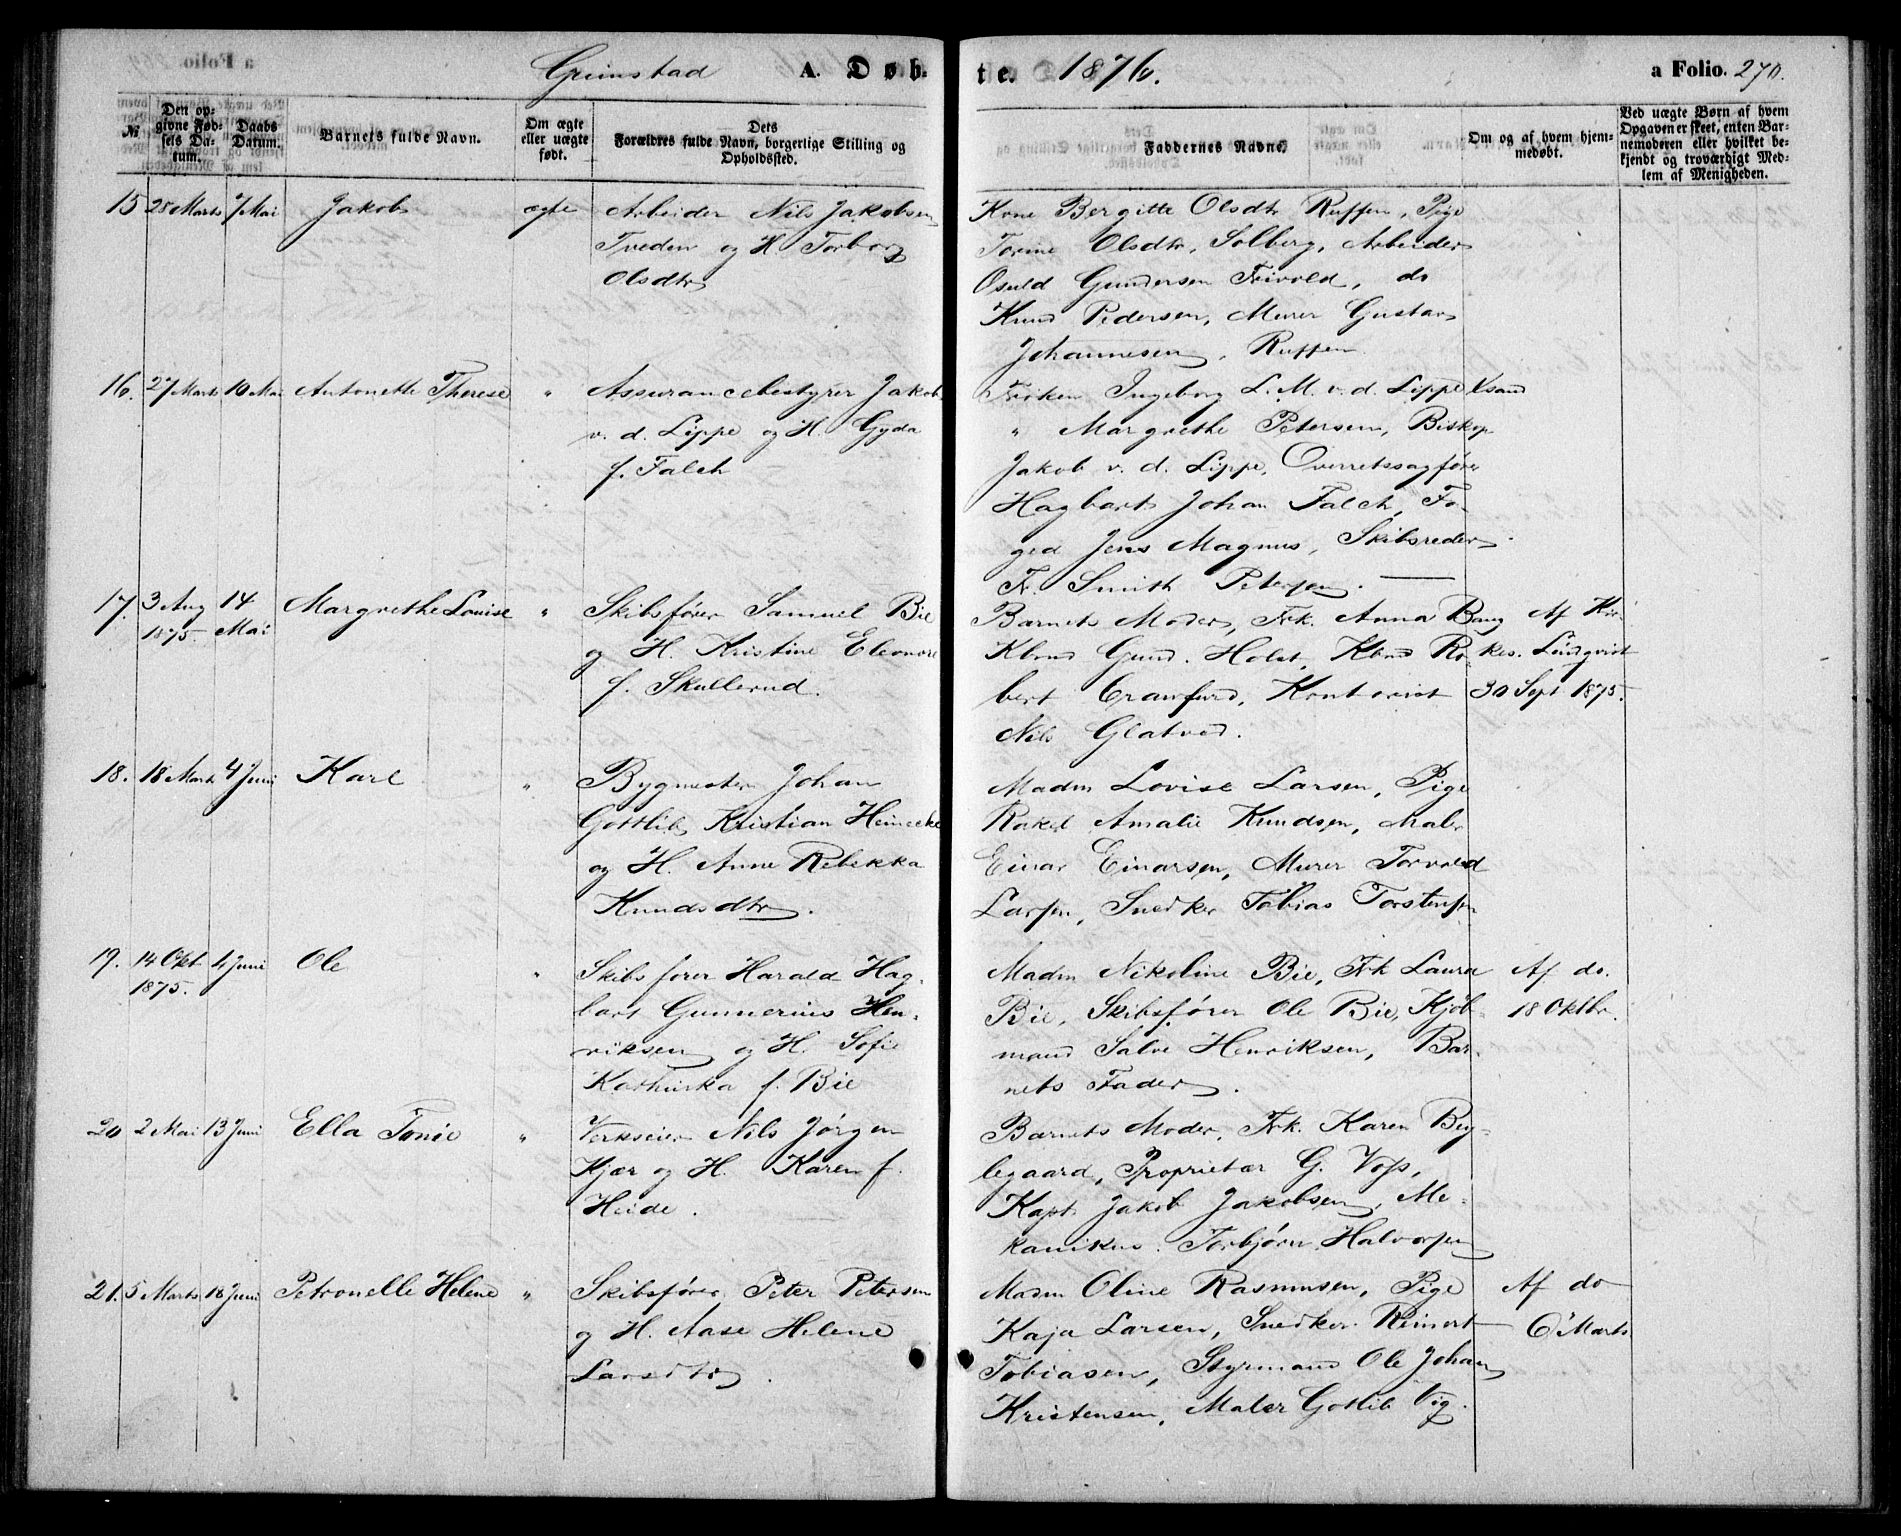 Grimstad A. Døbte. 1876. a Folio. 270.
№ Den opgivne Fødsels Datum. Daabs Datum. Barnets fulde Navn. Om ægte eller uægte født. Forældres fulde Navn, borgerlige Stilling og Dets Opholdssted. Faddernes Navne. Om og af hvem hjemmedøbt. Ved uægte Børn af hvem Opgaven er skeet, enten Barnemoderen eller hvilket bekjendt og troværdigt Medlem af Menigheden.
15 28 Marts 7 Mai Jakob ægte Arbeider Nils Jakobsen
Tveden og H. Torborg
Olsdtr
Kone Bergitte Olsdtr Ruffen, Pige
Tomine Olsdtr, Solberg, Arbeider
Osuld Gundersen Frivold, do
Knud Pedersen, Murer Gustav
Johannesen, Ruffen.
16. 27 Marts 10 Mai Antonette Therese " Assurancebestyrer Jakob
v. d. Lippe og H. Gyda
f. Falch
Frøken Ingeborg L. M. v. d. Lippe Xsand
" Margrethe Petersen, Biskop
Jakob v. d. Lippe, Overretssagfører
Hagbart Johan Falch, Fo-
ged Jens Magnus, Skibsreder
Fr. Smith Petersen.
17. 3 Aug 1875. 14 Mai Margrethe Louise " Skibsfører Samuel Bie
og H. Kristine Eleonore
f. Skullerud.
Barnets Moder, Frk. Anna Bang
Kbmd Gund. Holst, Kbmd Ro-
bert Cranfurd, Kontorist
Nils Glatved.
Af Kir-
kes. Lindqvist
30 Sept 1875.
18. 18 Marts 4 Juni Karl " Bygmester Johan
Gottlib Kristian Heinecke
og H. Anne Rebekka
Knudsdtr.
Madm Lovise Larsen, Pige
Rakel Amalie Knudsen, Maler
Einar Einarsen, Murer Torvald
Larsen, Snedker Tobias Torstensen
19. 14 Okt 1875. 4 Juni Ole " Skibsfører Harald Hag-
bart Gunnerius Hen-
riksen og H. Sofie
Kathinka f. Bie
Madm Nikoline Bie, Frk Laura
Bie, Skibsfører Ole Bie, Kjøb-
mand Salve Henriksen, Bar-
nets Fader.
Af do.
18 Oktbr.
20 2 Mai 13 Juni Ella Tonie " Verkseier Nils Jørgen
Kjær og H. Karen f.
Heide.
Barnets Moder, Frk. Karen Byg-
legaard, Proprietær G. Voss,
Kapt Jakob Jakobsen, Me-
kanikus Torbjørn Halvorsen
21. 5 Marts 18 Juni Petronelle Helene " Skibsfører Peter Petersen
og H. Aase Helene
Larsdtr.
Madm Oline Rasmusen, Pige
Kaja Larsen, Snedker Reinert
Tobiasen, Styrmand Ole Johan
Kristensen, Maler Gotlib Vig.
Af do
6 Marts